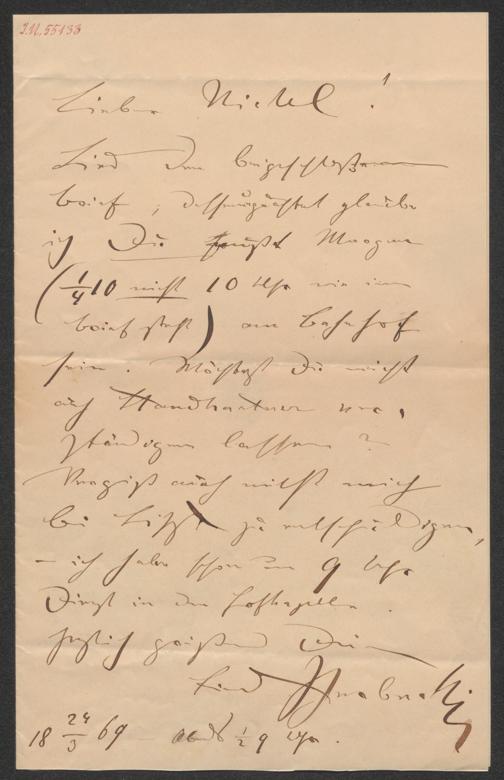 I.N. 55133
Lieber Nickel!
Lies den beigeschlossenen
Brief; dessenungeachtet glaube
ich Du sollst Morgen
(1/4 10 nicht 10 Uhr wie im
Brief steht) am Bahnhof
sein. Möchtest Du nicht
auch Standhartner ver-
ständigen lassen?
Vergiß auch nicht mich
bei Liszt zu entschuldigen,
– ich habe schon um 9 Uhr
Dienst in der Hofkapelle.
Herzlich grüßend Dein
Herbeck
18 24/3 69 Abds 1/2 9 Uhr.